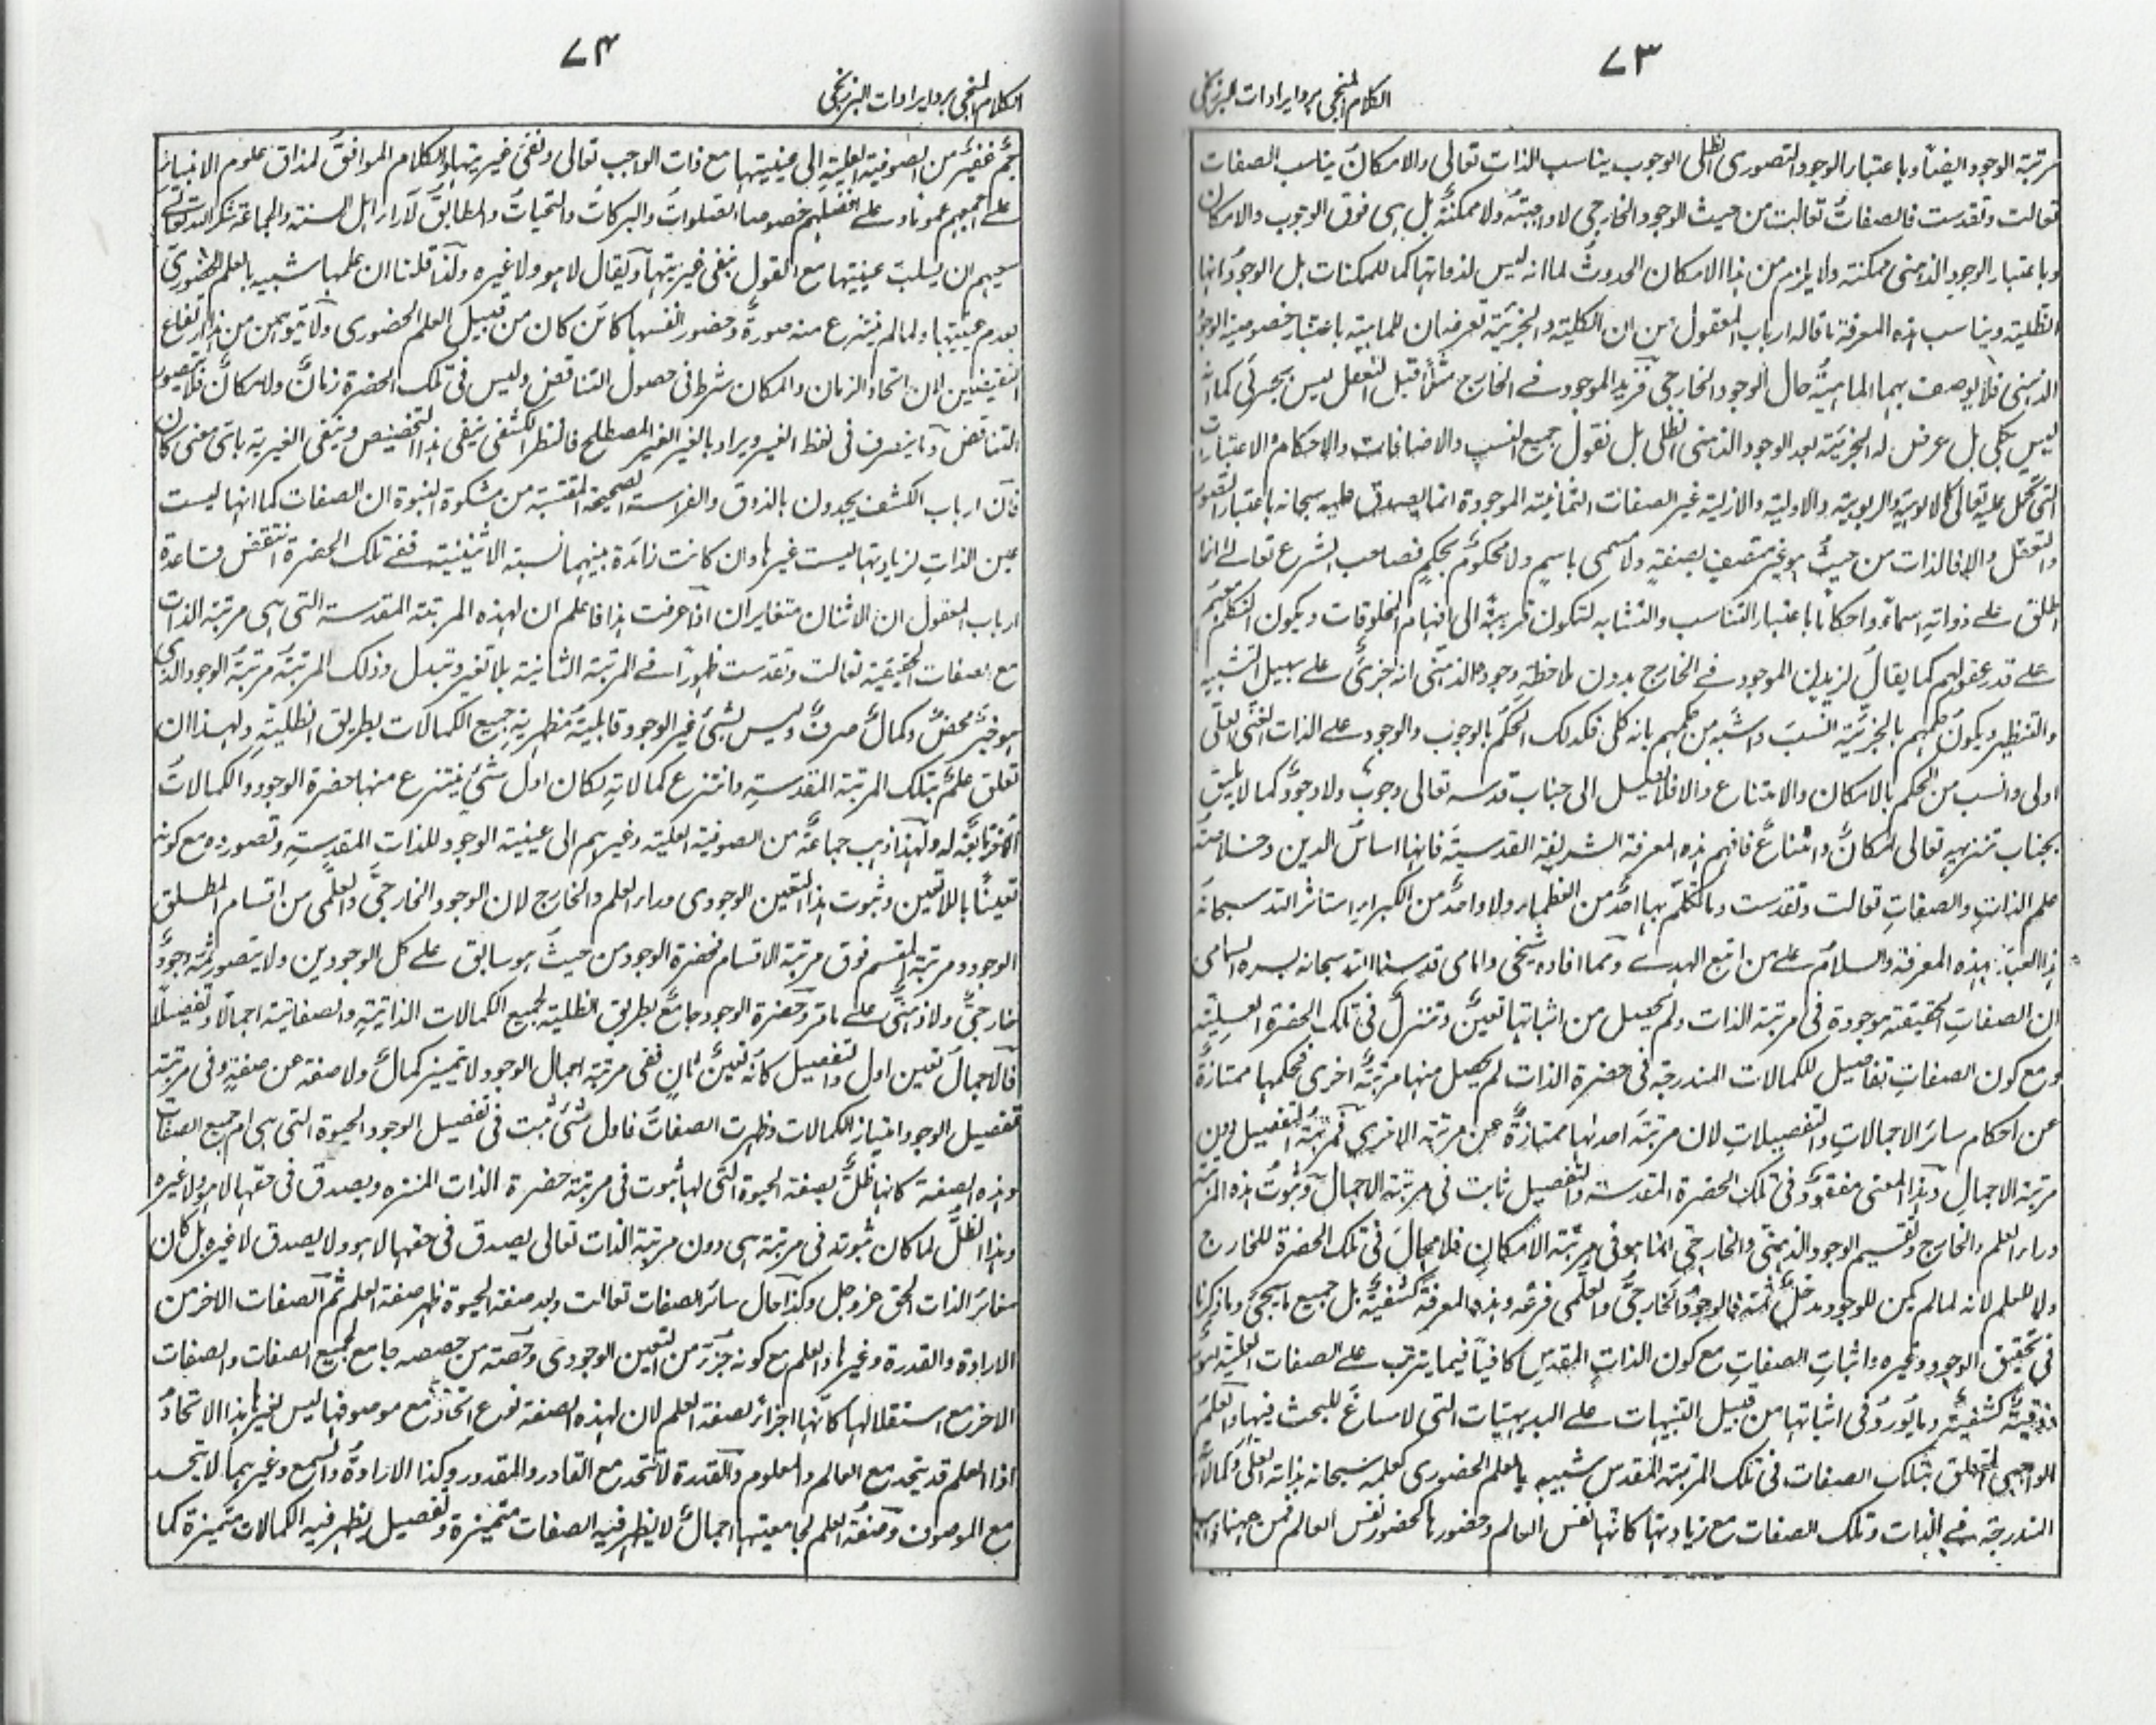 ٧٣
الكلام المنجى برد ايرادات البرزنجى
مرتبة الوجود ايضاً وباعتبار الوجود التصورى الظلى الوجوب يناسب الذات تعالى والامكان يناسب الصفات
تعالت وتقدست فالصفات تعالت من حيث الوجود الخارجى لا واجبة ولا ممكنة بل هى فوق الوجوب والامكان
وباعتبار الوجود الذهنى ممكنة ولا يلزم من هذا الامكان الحدوث لما انه ليس لذواتها كما للممكنات بل الوجودانها
الظلية ويناسب هذه المعرفة ما قاله ارباب المعقول من ان الكلية والجزئية تعرضان للماهية باعتبار خصوصية الوجود
الذهنى فلا يوصف بهما الماهية حال الوجود الخارجى فزيد الموجود فى الخارج مثلاً قبل التعقل ليس بجزئى كما انه
ليس بكلى بل عرض له الجزئية بعد الوجود الذهنى الظلى بل نقول جميع النسب والاضافات والاحكام والاعتبارات
التى تحمل عليه تعالى كالالوهية والربوبية والاولية والازلية غير الصفات الثمانية الموجودة انما يصدق عليه سبحانه باعتبار التصور
والتعقل والا فالذات من حيث هو غير متصف بصفة ولا مسمى باسم ولا محكوم بحكم فصاحب الشرع تعالى انما
اطلق على ذواته اسماء واحكاما باعتبار التناسب والتشابه لتكون قريبة الى افهام المخلوقات ويكون التكلم معهم
على قدر عقولهم كما يقال لزيد الموجود فى الخارج بدون ملاحظة وجوده الذهنى انه جزئى على سبيل التشبيه
والتنظير ويكون حكمهم بالجزئية انسب واشبه من حكمهم بانه كلى فكذلك الحكم بالوجوب والوجود على الذات الغنى العلى
اولى وانسب من الحكم بالامكان والامتناع والا فلا يصل الى جناب قدسه تعالى وجوب ولا وجود كما لا يليق
بجناب تنزيهه تعالى امكان وامتناع فافهم هذه المعرفة الشريفة القدسية فانها اساس الدين وخلاصة
علم الذات والصفات تعالت وتقدست وما تكلم بها احد من العظماء ولا واحد من الكبراء استأثر الله سبحانه
هذا العبد بهذه المعرفة والسلام على من اتبع الهدى ومما افاده شيخى وامامى قدسنا الله سبحانه بسره السامى
ان الصفات الحقيقية موجودة فى مرتبة الذات ولم يحصل من اثباتها تعين وتنزل فى تلك الحضرة العلية
ومع كون الصفات تفاصيل للكمالات المندرجة فى حضرة الذات لم يحصل منها مرتبة اخرى فحكمها ممتازة
عن احكام سائر الاجمالات والتفصيلات لان مرتبة احدهما ممتازة عن مرتبة الاخرى فمرتبة التفصيل دون
مرتبة الاجمال وهذا المعنى مفقود فى تلك الحضرة المقدسة والتفصيل ثابت فى مرتبة الاجمال وثبوت هذه المرتبة
وراء العلم والخارج وتقسيم الوجود الذهنى والخارجى انما هو فى مرتبة الامكان فلا مجال فى تلك الحضرة للخارج
ولا للعلم لانه لما لم يكن للوجود مدخل ثمة فالوجود الخارجى والعلمى فرعه وهذه المعرفة كشفية بل جميع ما يجئ وما ذكرنا
فى تحقيق الوجود وغيره واثبات الصفات مع كون الذات المقدس كافياً فيما يترتب على الصفات العلية
ذوقية كشفية وما يورد فى اثباتها من قبيل التنبيهات على البديهيات التى لا مساغ للبحث فيها والعلم
الواجبى المتعلق بتلك الصفات فى تلك المرتبة المقدس شبيه بالعلم الحضورى كعلمه سبحانه بذاته العلى وكمالاته
المندرجة فى الذات وتلك الصفات مع زيادتها كانها نفس العالم وحضورها كحضور نفس العالم فمن ههنا ذهب
٧٤
الكلام المنجى برد ايرادات البرزنجى
جم غفير من الصوفية العلية الى عينيتها مع ذات الواجب تعالى ونفى غيريتها والكلام الموافق لمذاق علوم الانبياء
على جميعهم عموما وعلى افضلهم خصوصا الصلوات والبركات والتحيات والمطابق لآراء اهل السنة والجماعة شكر الله تعالى
سعيهم ان يسلب عينيتها مع القول بنفى غيريتها ويقال لا هو ولا غيره ولذا قلنا ان علمها شبيه بالعلم الحضورى
لعدم عينيتها ولما لم ينتزع منه صورة وحضور انفسها كائن كان من قبيل العلم الحضورى ولا يتوهمن من هذا ارتفاع
النقيضين لان اتحاد الزمان والمكان شرط فى حصول التناقض وليس فى تلك الحضرة زمان ولا مكان فلا يتصور
التناقض وما يتصرف فى لفظ الغير ويراد بالغير الغير المصطلح فالنظر الكشفى ينفى هذا التخصيص وينفى الغيرية باى معنى كان
فان ارباب الكشف يجدون بالذوق والفراسة الصحيحة المقتبسة من مشكوة النبوة ان الصفات كما انها ليست
عين الذات لزيادتها ليست غيرها وان كانت زائدة بينهما نسبة الاثنينية ففى تلك الحضرة انتقض قاعدة
ارباب المعقول ان الاثنان متغايران اذا عرفت هذا فاعلم ان لهذه المرتبة المقدسة التى هى مرتبة الذات
مع الصفات الحقيقية تعالت وتقدست ظهوراً فى المرتبة الثانية بلا تغير وتبدل وذلك المرتبة مرتبة الوجود الذى
هو خير محض وكمال صرف وليس لشئ غير الوجود قابلية مظهرية جميع الكمالات بطريق الظلية ولهذا ان
تعلق علم بتلك المرتبة المقدسة وانتزع كمالاته لكان اول شئ ينتزع منها حضرة الوجود والكمالات
الاخر تابعة له ولهذا ذهب جماعة من الصوفية العلية وغيرهم الى عينية الوجود للذات المقدسة وتصوره مع كونه
تعيناً باللاتعين وثبوت هذا التعين الوجودى وراء العلم والخارج لان الوجود الخارجى والعلمى من اقسام المطلق
الوجود ومرتبة المقسم فوق مرتبة الاقسام فحضرة الوجود من حيث هو سابق على كل الوجودين ولا يتصور ثمة وجود
خارجى ولا ذهنى على ما مر وحضرة الوجود جامع بطريق الظلية لجميع الكمالات الذاتية والصفاتية اجمالاً وتفصيلاً
فالاجمال تعين اول والتفصيل كانه تعين ثان ففى مرتبة اجمال الوجود لا يتميز كمال ولا صفة عن صفة وفى مرتبة
تفصيل الوجود امتياز الكمالات وظهرت الصفات فاول شئ ثبت فى تفصيل الوجود الحيوة التى هى ام جميع الصفات
وهذه الصفة كانها ظل بصفة الحيوة التى لها ثبوت فى مرتبة حضرة الذات المنزه ويصدق فى حقها لا هو ولا غيره
وهذا الظل لما كان ثبوته فى مرتبة هى دون مرتبة الذات تعالى يصدق فى حقها لا هو ولا يصدق لا غيره بل كان
مغاير الذات الحق عز وجل وكذا حال سائر الصفات تعالت وبعد صفة الحيوة ظهر صفة العلم ثم الصفات الاخر من
الارادة والقدرة وغيرها والعلم مع كونه جزء من التعين الوجودى وحصة من حصصه جامع لجميع الصفات والصفات
الاخر مع استقلالها كانها اجزاء لصفة العلم لان لهذه الصفة نوع اتحاد مع موصوفها ليس لغيرها هذا الاتحاد
اذ العلم قد يتحد مع العالم والمعلوم والقدرة لا تتحد مع القادر والمقدور وكذا الارادة والسمع وغيرهما لا يتحد
مع الموصوف وصفة العلم لجامعيتها اجمال لا يظهر فيه الصفات متميزة وتفصيل يظهر فيه الكمالات متميزة كما